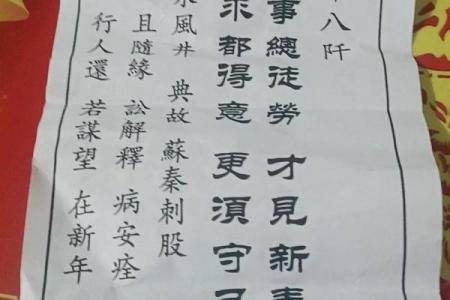 八阡
事總徒勞 才見新春
求都得意 更須守己
水風井 典故 蘇秦刺股
且隨緣 訟解釋 病安痊
行人還 若謀望 在新年